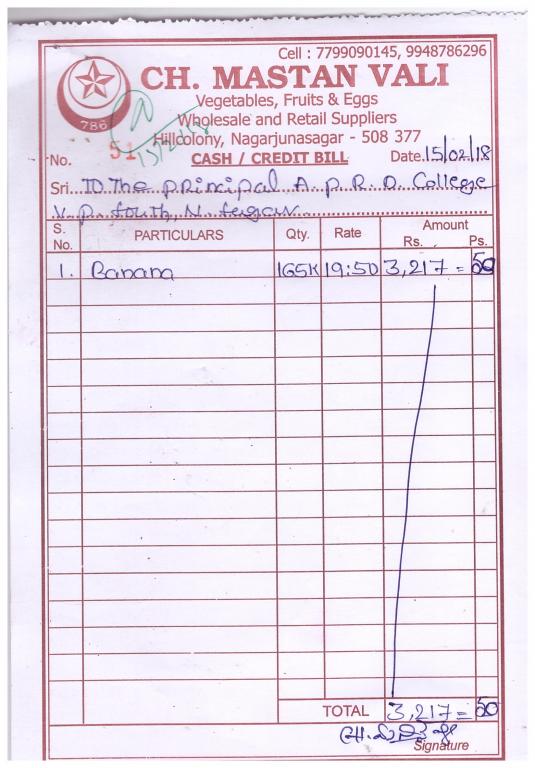 Cell : 7799090145, 9948786296
CH. MASTAN VALI
786
Vegetables, Fruits & Eggs
Wholesale and Retail Suppliers
Hillcolony, Nagarjunasagar - 508 377
No. 51 CASH / CREDIT BILL Date. 15/02/18
Sri... TO The principal A.P.R.D. College
V.P. South, N.
S. No. PARTICULARS Qty. Rate Amount Rs. Ps.
1. Banana 165K 19:50 3,217 = 50
TOTAL 3,217 = 50
Signature